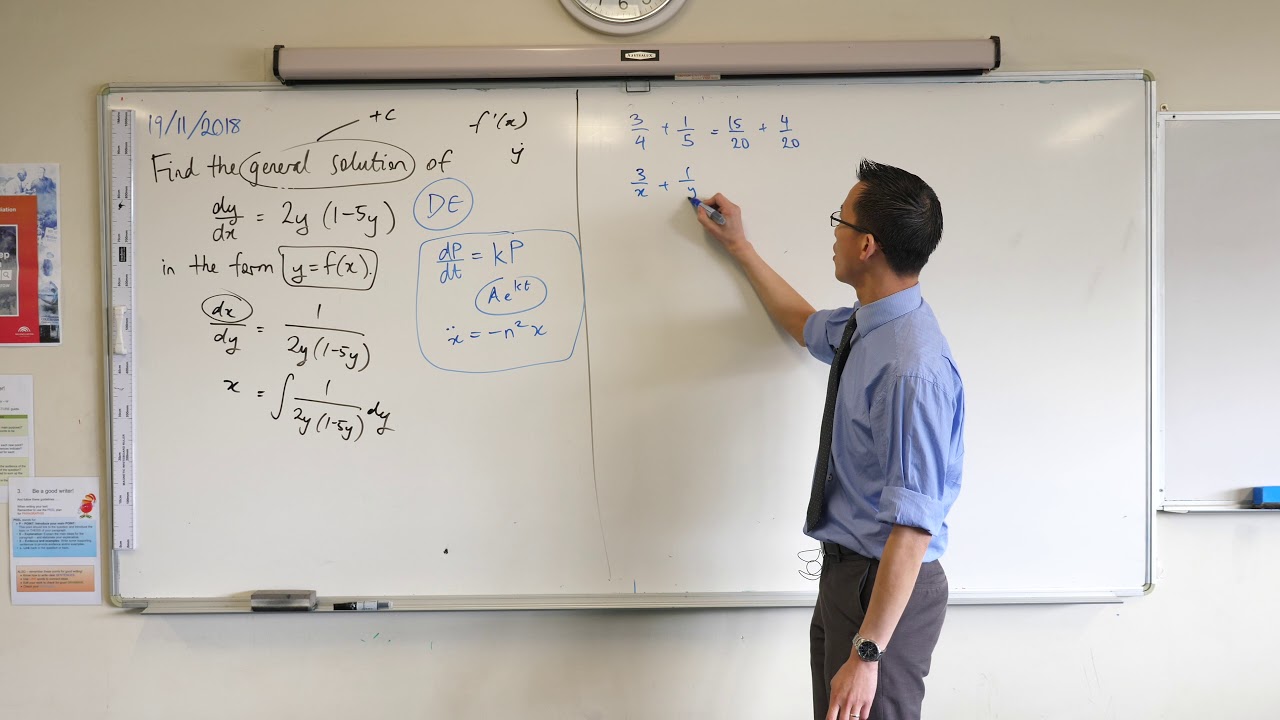 19/11/2018
+C
f'(x)
ẏ
Find the general solution of
dy/dx = 2y (1-5y)
DE
in the form y=f(x).
dP/dt = kP
Ae^kt
ẍ = -n²x
dx/dy = 1/2y(1-5y)
x = ∫ 1/2y(1-5y) dy
3/4 + 1/5 = 15/20 + 4/20
3/x + 1/y
3. Be a good writer!